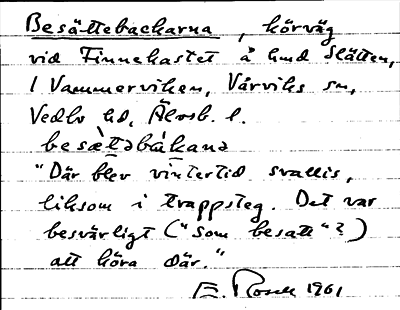 Besättebackarna, körväg
vid Finnekastet å hmd Slätten,
1 Vammerviken, Vårviks sn,
Vedbo hd, Älvsb. l.
besæ̀təbàkanə
"Där blev vintertid svallis,
liksom i trappsteg. Det var
besvärligt ("som besatt"?)
att köra där."
E. 1961